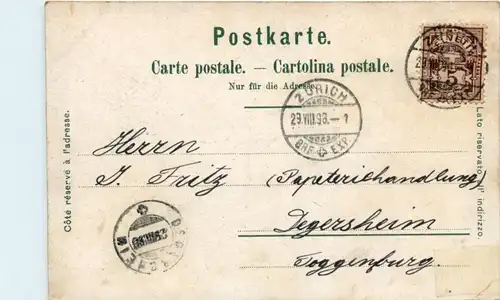 Postkarte.
Carte postale. — Cartolina postale.
Nur für die Adresse.
HELVETIA
5
ZÜRICH
29.VIII.98.–1
BRF. EXP.
Côté réservé à l'adresse.
Lato riservato all' indirizzo.
Herrn
J. Fritz (Papeteriehandlung)
Degersheim
Toggenburg.
DEGERSHEIM